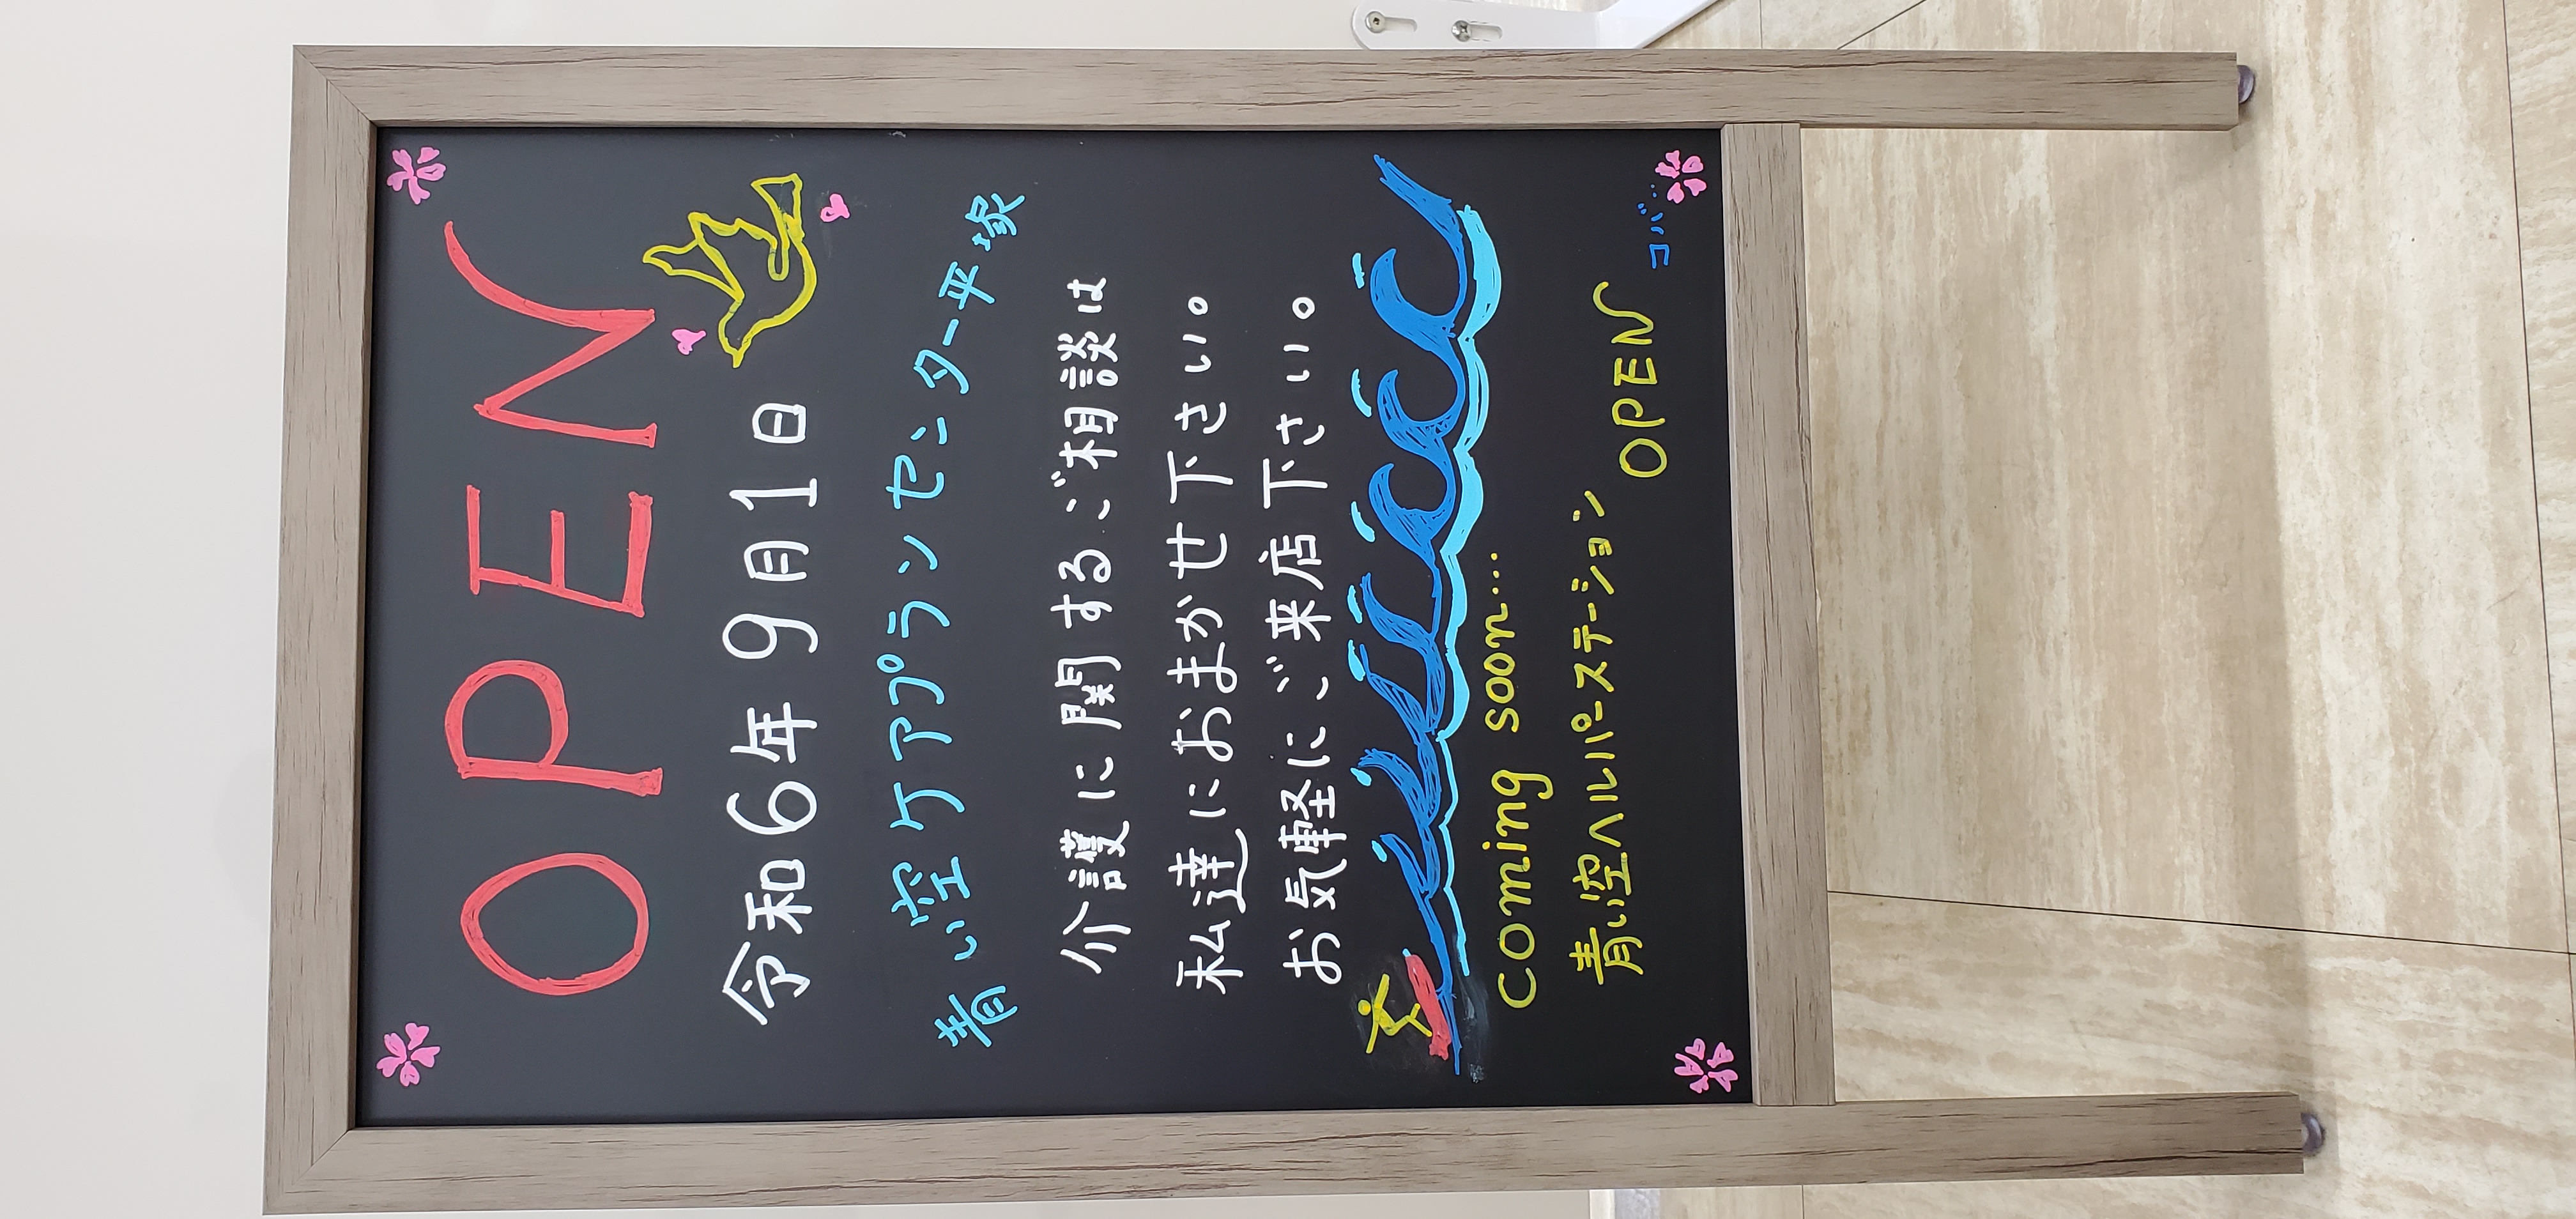 OPEN
令和6年9月1日
青い空ケアプランセンター平塚
介護に関するご相談は
私達におまかせ下さい。
お気軽にご来店下さい。
coming soon...
青い空ヘルパーステーション
OPEN
コバ...